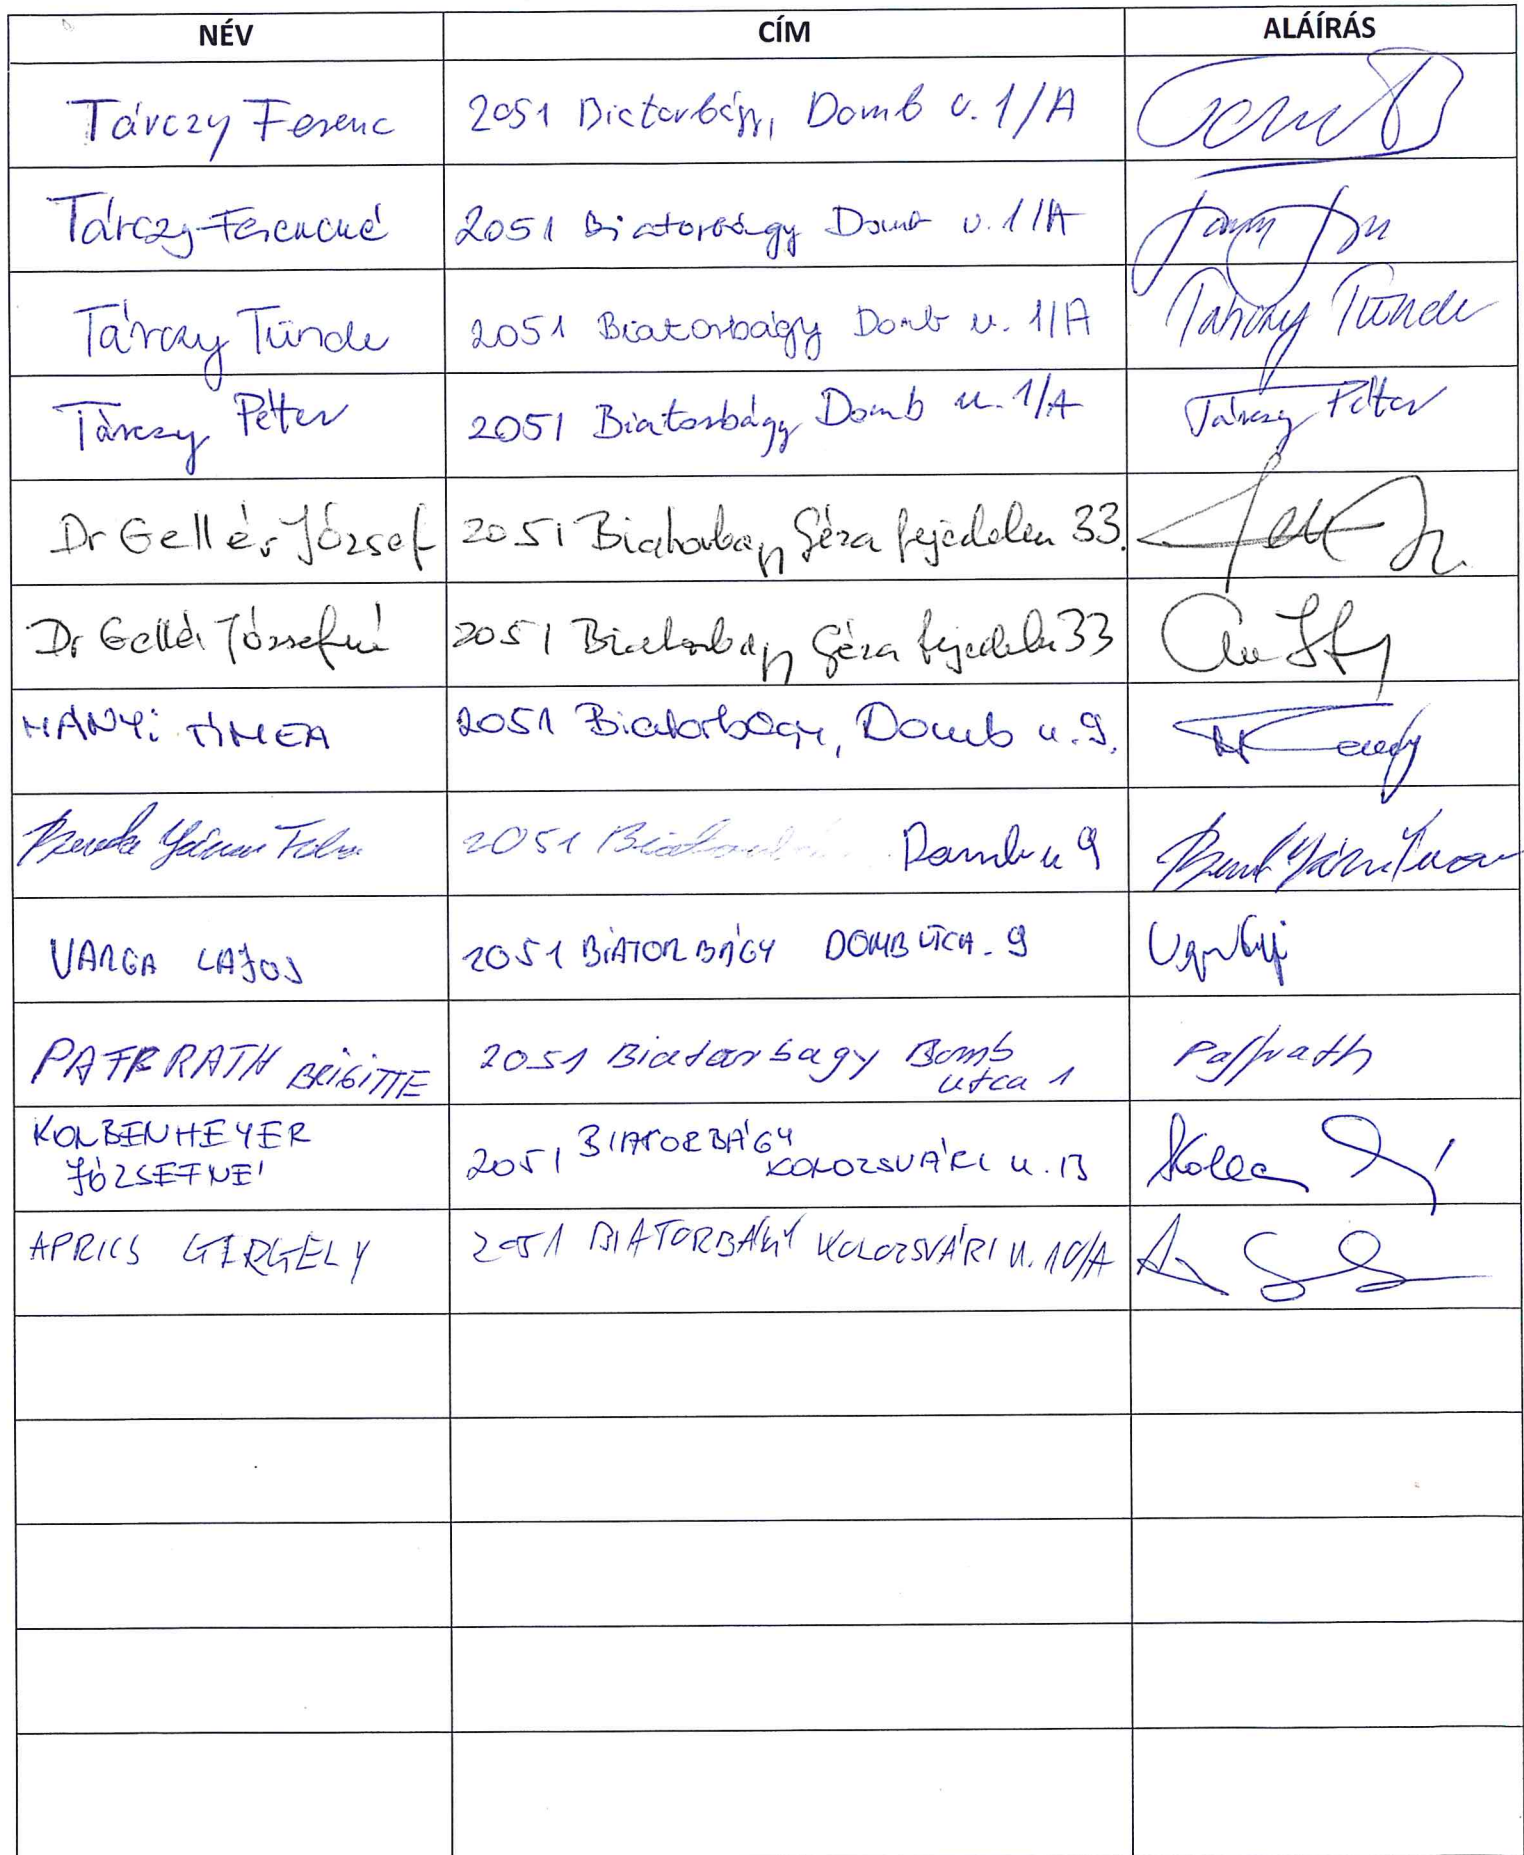 NÉV CÍM ALÁÍRÁS
Tárczy Ferenc 2051 Biatorbágy, Domb u. 1/A
Tárczy Ferencné 2051 Biatorbágy Domb u. 1/A
Tárczy Tünde 2051 Biatorbágy Domb u. 1/A Tárczy Tünde
Tárczy Péter 2051 Biatorbágy Domb u. 1/A Tárczy Péter
Dr Gellér József 2051 Biatorbágy Géza fejedelem 33.
Dr Gellér Józsefné 2051 Biatorbágy Géza fejedelem 33
MÁNYI TÍMEA 2051 Biatorbágy, Domb u. 9.
2051 Domb u 9
VARGA LAJOS 2051 BIATORBÁGY DOMB UTCA. 9
PAFFRATH BRIGITTE 2051 Biatorbagy Domb utca 1 Paffrath
KOLBENHEYER
JÓZSEFNÉ 2051 BIATORBÁGY KOLOZSVÁRI u. 13
APRICS GERGELY 2051 BIATORBÁGY KOLOZSVÁRI U. 10/A